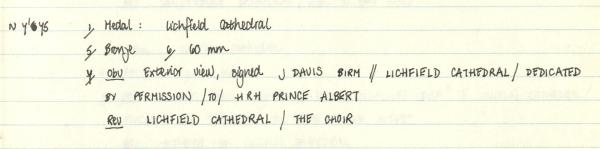 N Y'6 YS 1, Medal: Lichfield Cathedral
5, Bronze 6, 60 mm
4, Obv Exterior view, signed J DAVIS BIRM // LICHFIELD CATHEDRAL / DEDICATED
BY PERMISSION / TO / H R H PRINCE ALBERT
Rev LICHFIELD CATHEDRAL / THE CHOIR